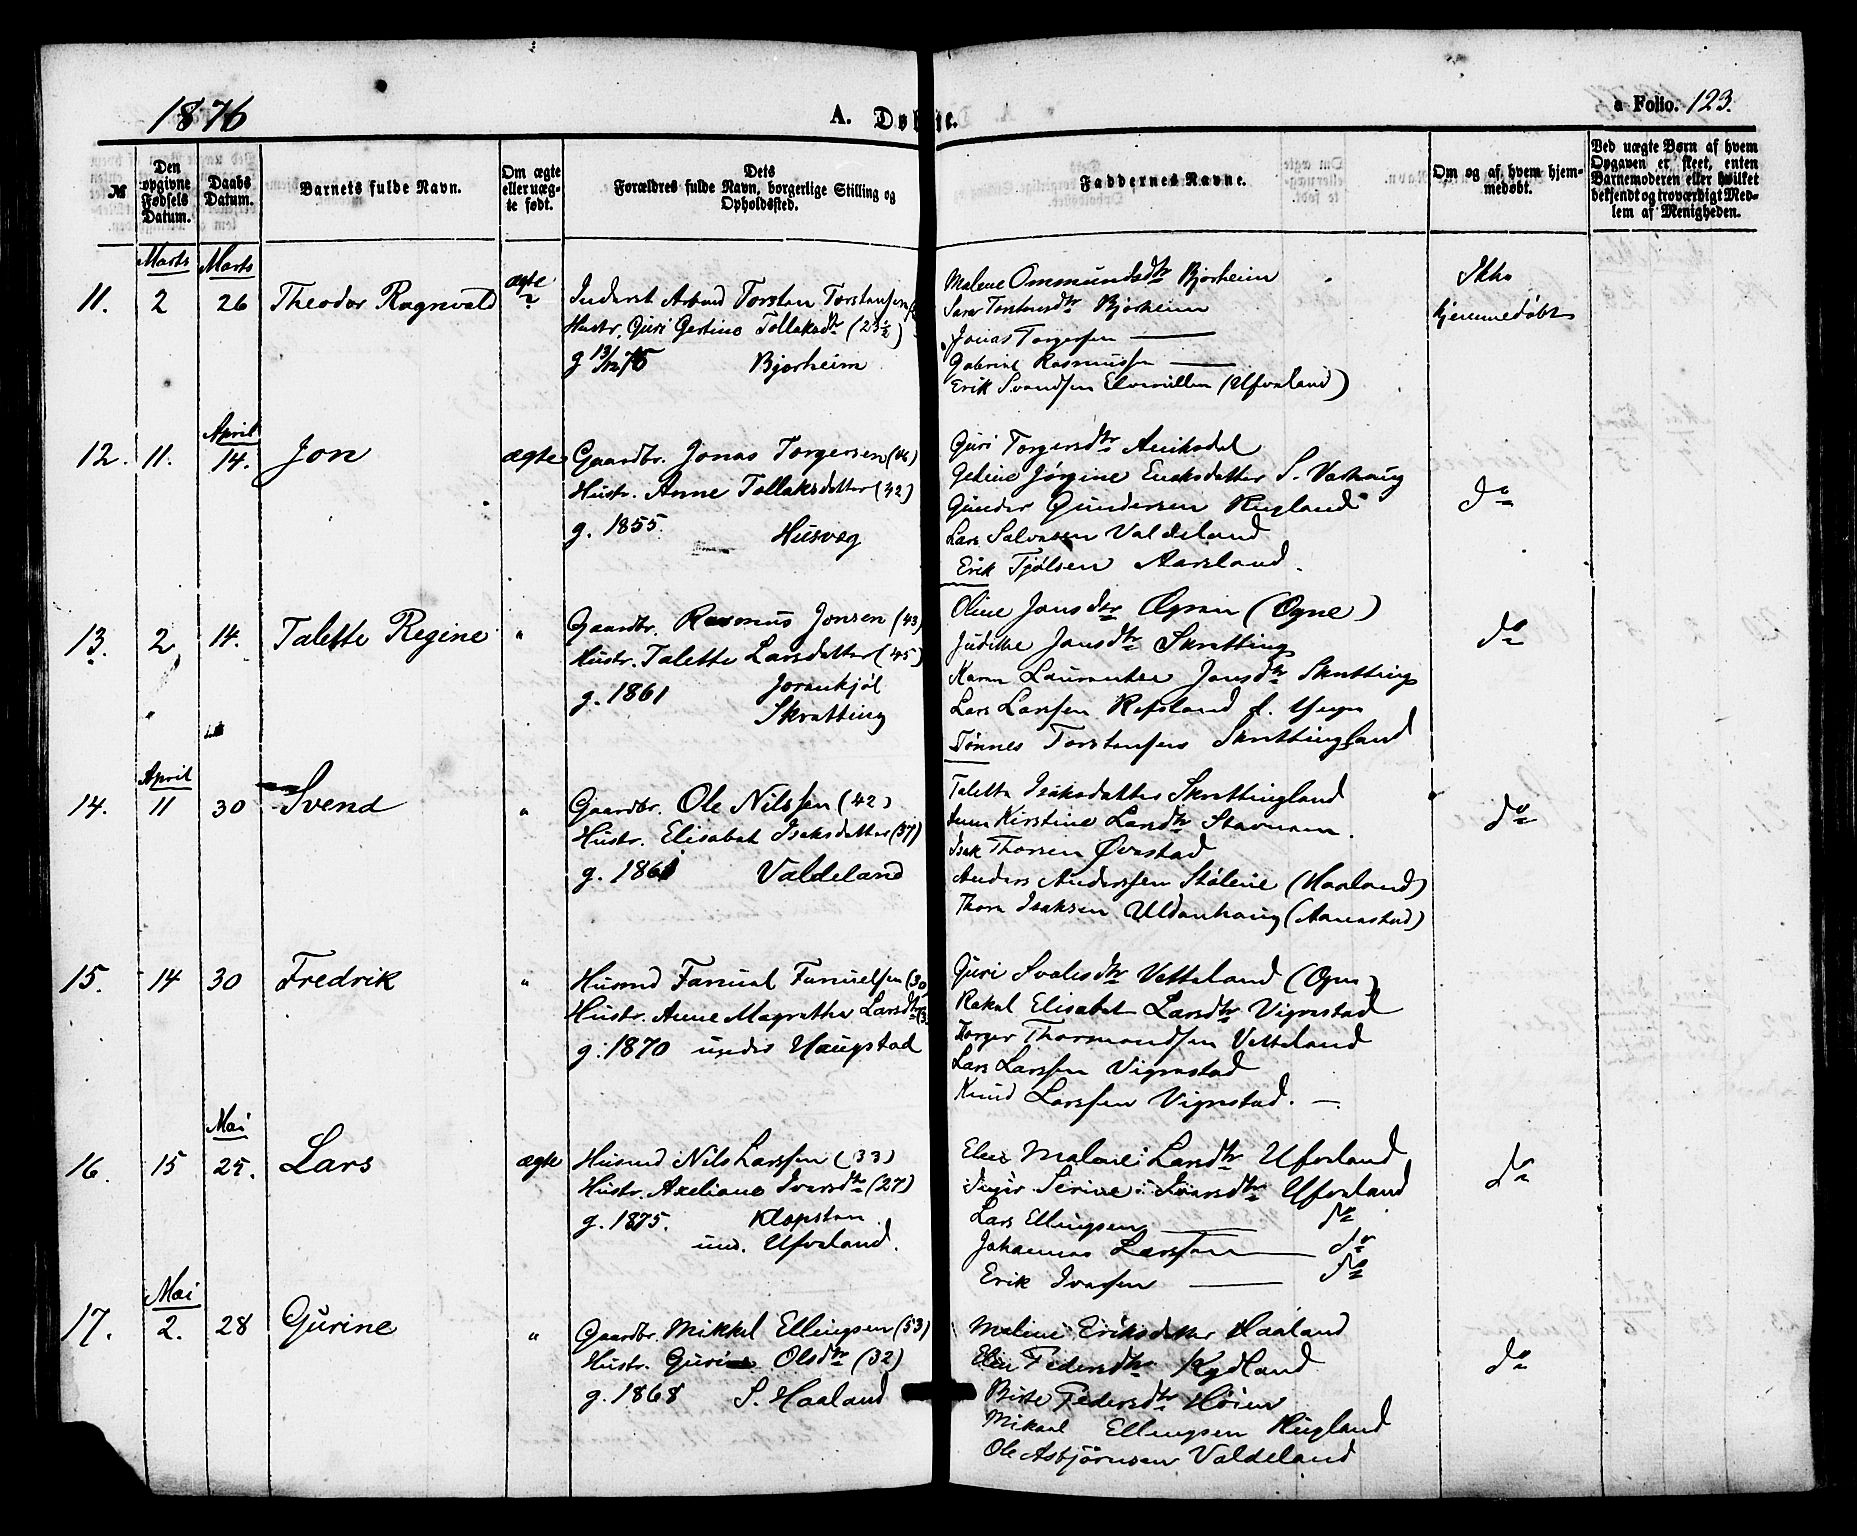 1876
A. Døbte.
a Folio. 123.
№
Den opgivne Fødsels Datum.
Daabs Datum.
Barnets fulde Navn.
Om ægte eller uægte født.
Dets Forældres fulde Navn, borgerlige Stilling og Opholdssted.
Faddernes Navne.
Om og af hvem hjemmedøbt.
Ved uægte Børn af hvem Opgaven er skeet, enten Barnemoderen eller hvilket bekjendt og troværdigt Medlem af Menigheden.
Marts Marts
11. 2 26 Theodor Ragnvald ægte
Torsten Torstensen
Hustr. Guri Gertine Tollaksdtr (23½)
g 13/12 75 Bjorheim
Malene Ommundsdtr Bjorheim
Torstensdtr Bjorheim
Jonas Torgersen —
Gabriel Rasmussen —
Erik Svendsen (Ufsaland)
Ikke
hjemmedøbt
April
12. 11. 14. Jon ægte
Gaardbr. Jonas Torgersen (46)
Hustr. Anne Tollaksdatter (42)
g. 1855. Husveg
Guri Torgersdtr Aniksdal
Jørgine S. Varhaug
Gunder Gundersen Hugland
Lars Salvesen Valdeland
Erik Tjølsen Aarsland.
do
13. 2 14. Talette Regine "
Gaardbr. Rasmus Jonsen (43)
Hustr. Talette Larsdatter (45)
g. 1861 Jorenkjøl
Skretting
Oline Jonsdtr (Ogne)
Judithe Jonsdtr Skretting
Karen Laurentse Jonsdtr Skretting
Lars Larssen Refsland
Tønnes Torstensen Skrettingland
do
April
14. 11 30 Svend "
Gaardbr. Ole Nilssen (42)
Hustr. Elisabet Isaksdatter (37)
g. 1861 Valdeland
Taletta Isaksdatter Skrettingland
Kirstine Larsdtr Stavnem.
Isak Thorsen Øvrstad
Anders Anderssen Stølene (Haaland)
Thore Isaksen Uldenhaug
do
15. 14 30 Fredrik "
Husmd Fanuel Fanuelsen (30
Hustr. Anne Magrethe Larsdtr
g. 1870 under Haugstad
Guri Vetteland (Ogne)
Rakel Elisabet Larsdtr Vigrestad
Torger Thormondsen Vetteland
Lars Larssen Vigrestad
Knud Larssen Vigrestad. —
Mai
16. 15 25. Lars ægte
Husmd Nils Larssen (33)
Hustr. Axeliane Iversdtr (27)
g. 1875. Klopsten
und. Ufsaland.
Malene Larsdtr Ufsaland
Serine Iversdtr Ufsaland
Lars Ellingsen — do
Johannes Larssen — do
Erik Iverssen — do
do
Mai
17. 2. 28 Gurine "
Gaardbr. Mikkel Ellingsen (53)
Hustr. Gurine Olsdtr (32)
g. 1868 S. Haaland
Malene Eriksdatter Haaland
Elen Pedersdtr Kydland
Birte Pedersdtr Høien
Mikael Ellingsen Hugland
Ole Asbjørnsen Valdeland
do